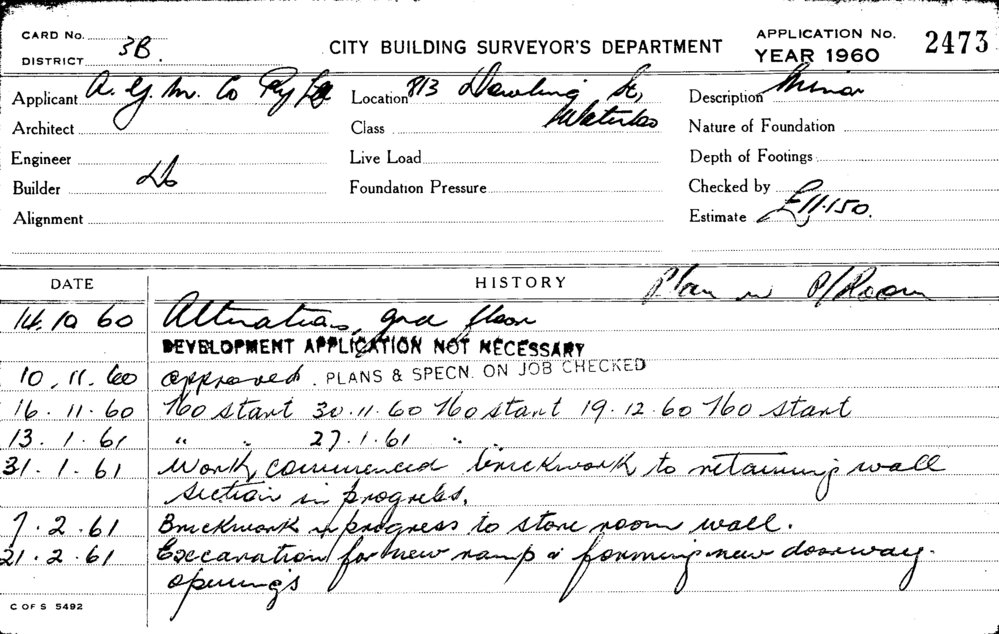 CARD No.
DISTRICT 3B.
CITY BUILDING SURVEYOR'S DEPARTMENT
APPLICATION No. 2473
YEAR 1960
Applicant A. G. M. Co Pty Ltd Location 813 Dowling St, Description Minor
Architect Class Waterloo Nature of Foundation
Engineer Live Load Depth of Footings
Builder Do Foundation Pressure Checked by
Alignment Estimate £11.150.
DATE HISTORY Plan in P/Room
14.10 60 Alterations, grd floor
DEVELOPMENT APPLICATION NOT NECESSARY
10.11.60 approved. PLANS & SPECN. ON JOB CHECKED
16.11.60 No start 30.11.60 No start 19.12.60 No start
13.1.61 " " 27.1.61 " "
31.1.61 Work commenced brickwork to retaining wall
section in progress.
7.2.61 Brickwork in progress to store room wall.
21.2.61 Excavation for new ramp & forming new doorway
openings
C OF S 5492